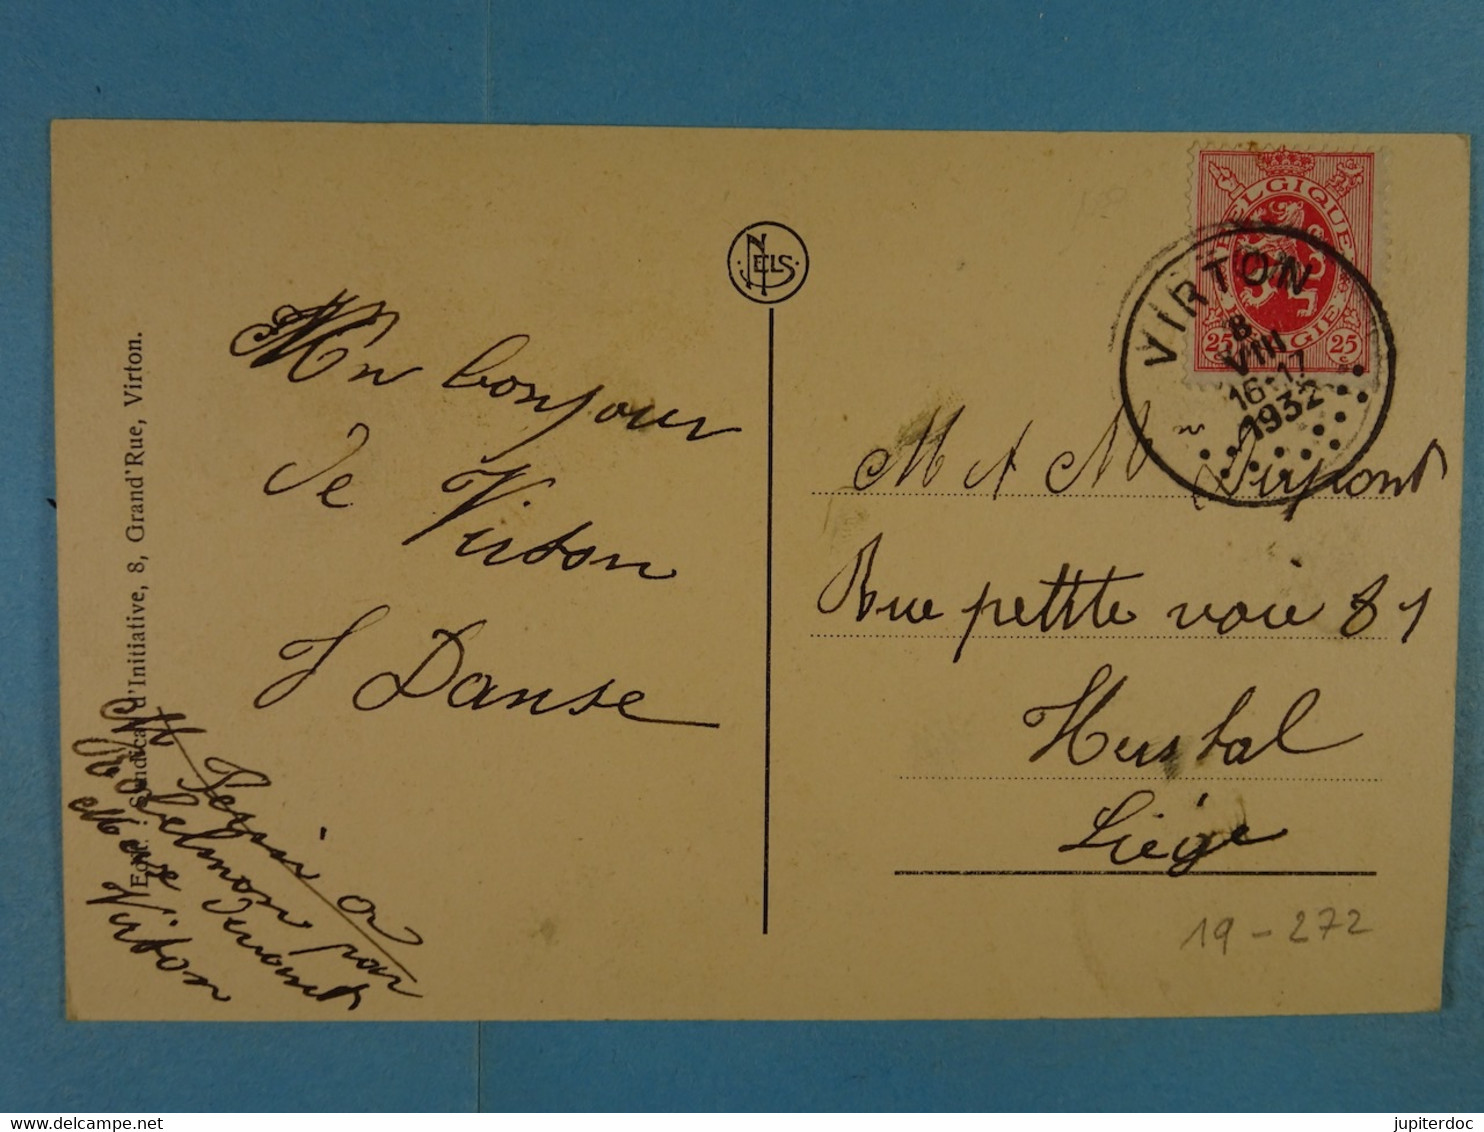 NELS
BELGIQUE
BELGIE
25 25
VIRTON
8
VIII
16-17
1932
Un bonjour
de Virton
J Danse
M et M Dirpont
Rue petite voie 81
Herstal
Liége
19-272
Edit. : Syndicat d'Initiative, 8, Grand'Rue, Virton.
par
Virton
www.delcampe.net
jupiterdoc